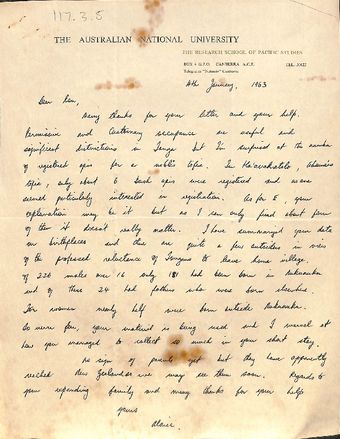 117.3.5
THE AUSTRALIAN NATIONAL UNIVERSITY
THE RESEARCH SCHOOL OF PACIFIC STUDIES
BOX 4 G.P.O. CANBERRA A.C.T.
Telegrams "Natuniv" Canberra
4th January, 1963
Dear
Many thanks for your letter and your help.
Permissive and Customary occupance are useful and
significant distinctions in Tonga but I'm surprised at the number
of registered apis for a noble's tofia. In Ha'avakatolo,
tofia, only about 6 such apis were registered and no-one
seemed particularly interested in registration. As for E, your
explanation may be it but as I can only find about four
of them it doesn't really matter. I have summarized your data
on birthplaces and there are quite a few outsiders in view
of the professed reluctance of Tongans to leave home village
of 226 males over 16 only 181 had been born in Nukunuku
and of these 24 had fathers who were born elsewhere.
For women nearly half were born outside Nukunuku.
As were few, your material is being used and I marvel at
how you managed to collect so much in your short stay.
No sign of parents yet but they have apparently
reached New Zealand so we may see them soon. Regards to
your expanding family and many thanks for your help
yours